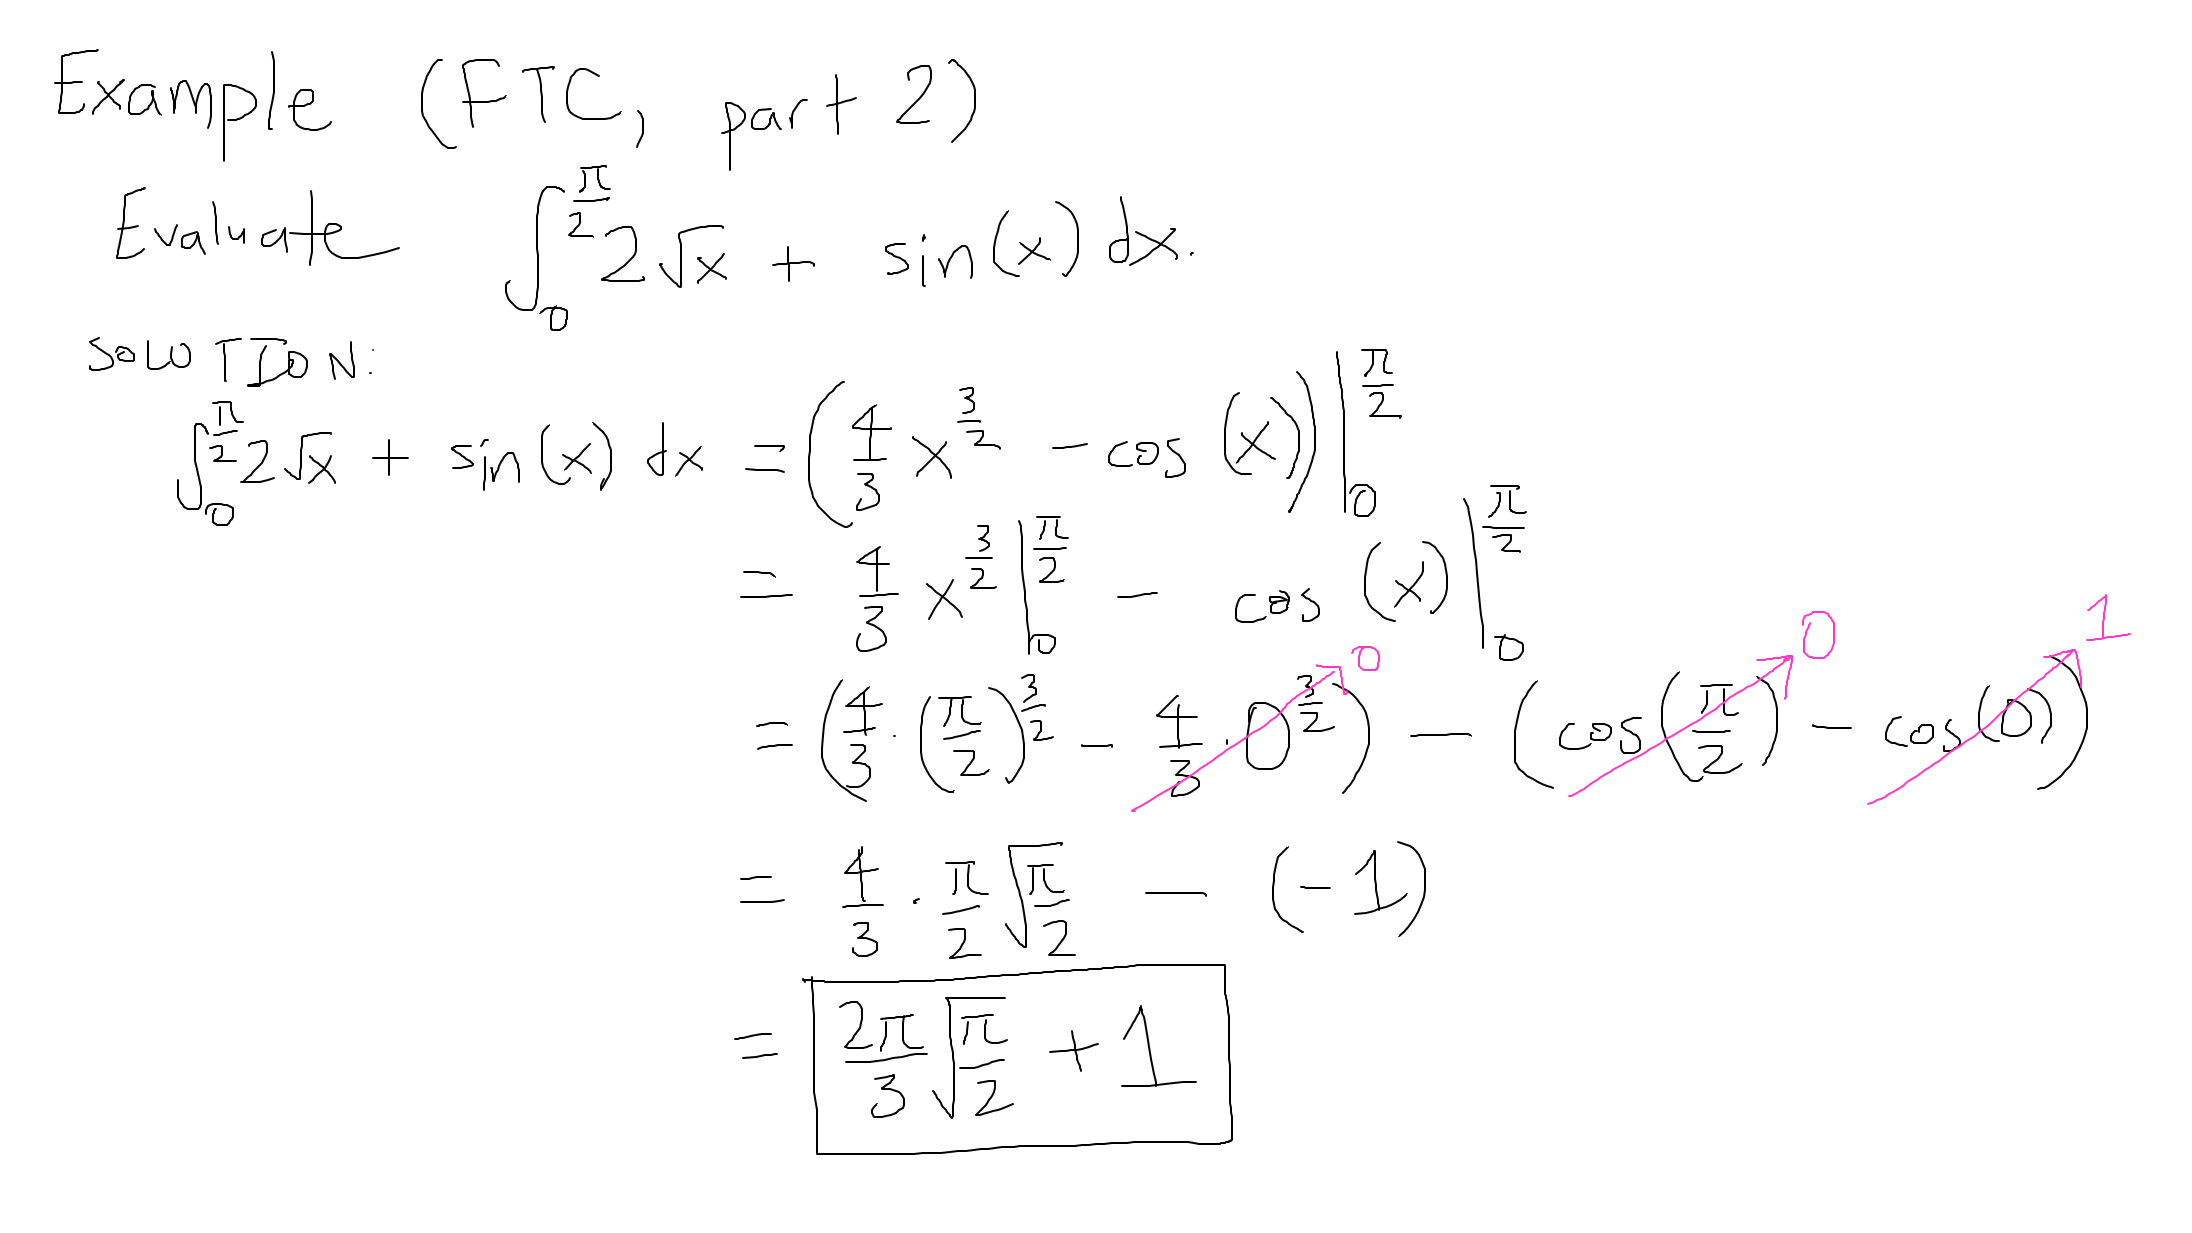 Example (FTC, part 2)
Evaluate ∫_0^{π/2} 2√x + sin(x) dx.
SOLUTION:
∫_0^{π/2} 2√x + sin(x) dx = (4/3 x^{3/2} - cos(x))|_0^{π/2}
= 4/3 x^{3/2}|_0^{π/2} - cos(x)|_0^{π/2}
= (4/3 · (π/2)^{3/2} - 4/3 · 0^{3/2}) - (cos(π/2) - cos(0)) 0 0 1
= 4/3 · π/2 √(π/2) - (-1)
= 2π/3 √(π/2) + 1